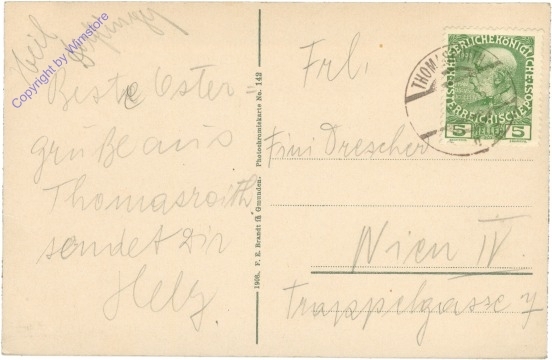 Copyright by Wimstore
Beste Oster=
grüße aus
Thomasroith
sendet Dir
1908. F. E. Brandt in Gmunden. Photochromiekarte No. 142
Frl.
Fini Drescher
Wien IV.
Trappelgasse 7
THOMAS
KAISERLICHE KÖNIGLICHE
ÖSTERREICHISCHE POST
5 HELLER 5